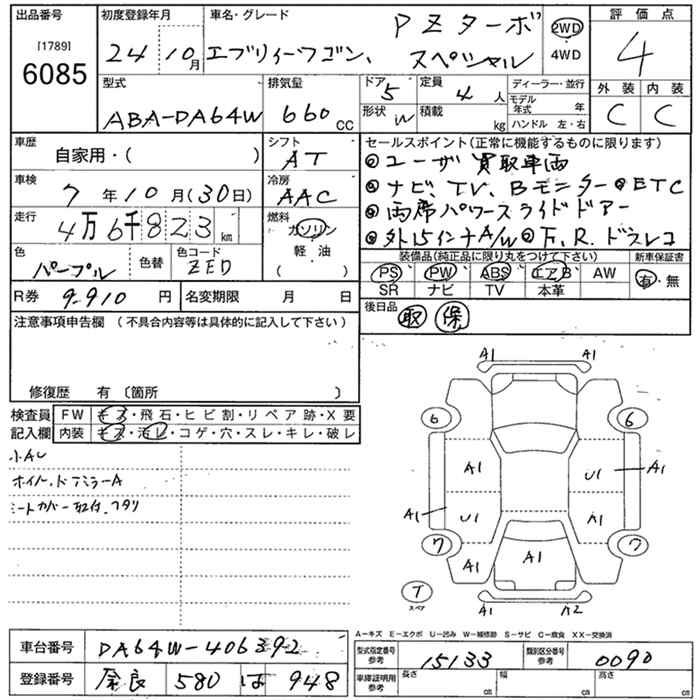 出品番号 初度登録年月 車名・グレード 評価点
[1789] 6085
24 10月 エブリィーワゴン、 PZターボ スペシャル 2WD・4WD 4
型式 排気量 ドア 定員 ディーラー・並行 外装 内装
ABA-DA64W 660cc 5 4人 モデル年式 年 C C
形状 in 積載 kg ハンドル 左・右
車歴 シフト セールスポイント(正常に機能するものに限ります)
自家用・( ) AT ◎ユーザ買取車両
車検 冷房 ◎ナビ、TV、Bモニター◎ETC
7年10月(30日) AAC ◎両席パワースライドドアー
走行 4万6千823km 燃料 ガソリン 軽油 ( )
◎外15インチA/W◎F.R.ドラレコ
装備品(純正品に限り丸をつけて下さい) 新車保証書
色 パープル 色替 色コード ZED PS PW ABS エアB AW 有・無
SR ナビ TV 本革
R券 9-910円 名変期限 月 日 後日品 取 保
注意事項申告欄 (不具合内容等は具体的に記入して下さい)
修復歴 有 〔箇所 〕
検査員 FW キズ・飛石・ヒビ割・リペア跡・X要
記入欄 内装 キズ・汚レ・コゲ・穴・スレ・キレ・破レ
小AU
ホイル、ドアミラーA
シートカバー取付、フタリ
A1 A1
6 6
A1 U1 A1
A1 U1 A1
7 A1 A1 7
T スペア
A1 A2
A-キズ E-エクボ U-凹み W-補修跡 S-サビ C-腐食 XX-交換済
車台番号 DA64W-406392 型式指定番号 参考 15133 類別区分番号 参考 0090
登録番号 奈良 580 は 948 車庫証明用 参考 長さ cm 幅 cm 高さ cm